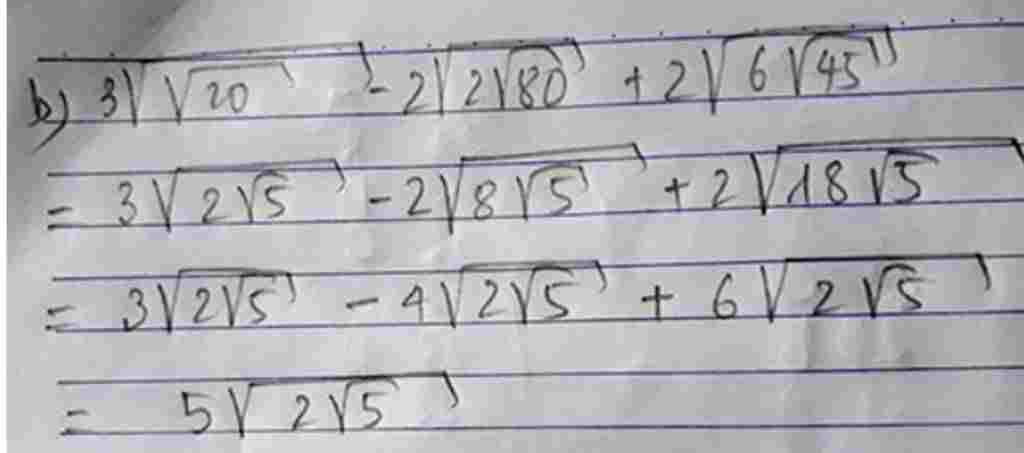 b) 3√(√20) - 2√(2√80) + 2√(6√45)
= 3√(2√5) - 2√(8√5) + 2√(18√5)
= 3√(2√5) - 4√(2√5) + 6√(2√5)
= 5√(2√5)